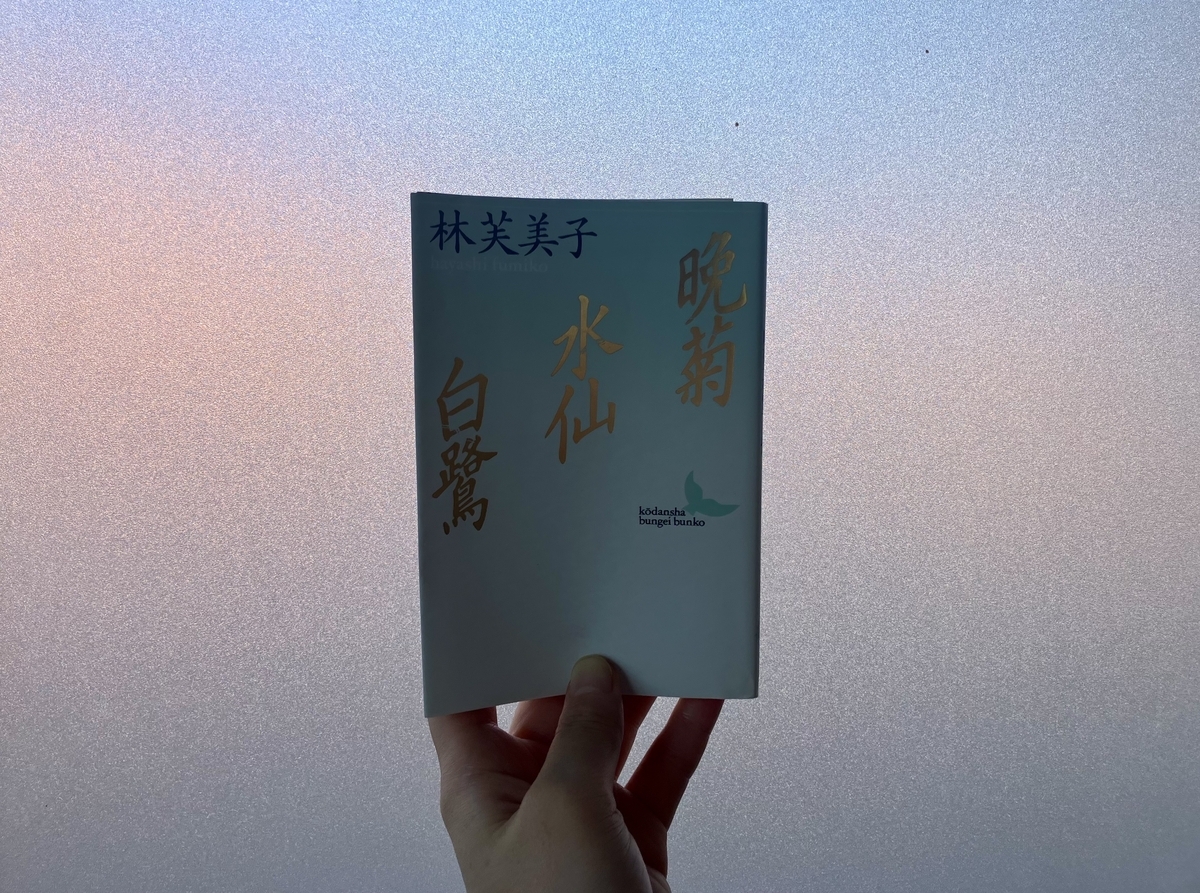 林芙美子
hayashi fumiko
晩菊
水仙
白鷺
kōdansha
bungei bunko